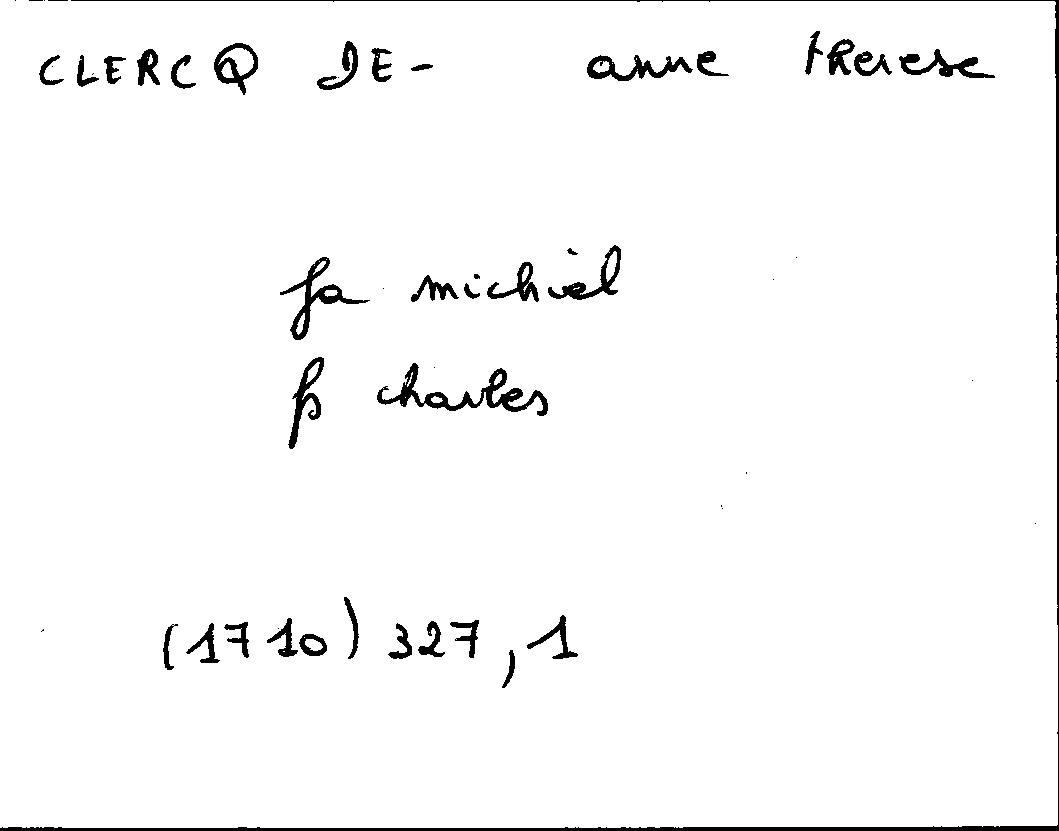 CLERCQ DE- anne therese
fa michiel
fs charles
(1710) 327,1